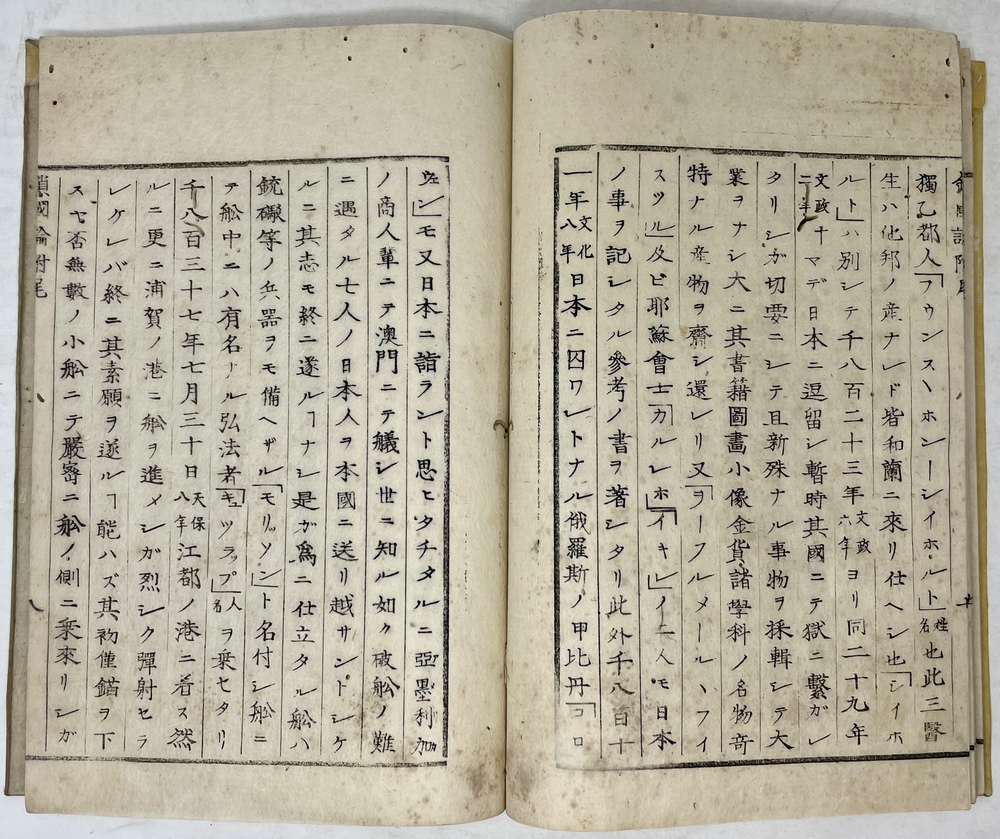 獨乙都人「フウンスヽホンーシイホ・ルト」姓名也此三醫
生ハ他邦ノ産ナレド皆和蘭ニ來リ仕ヘシ也「シイホ
ルト」ハ別シテ千八百二十三年文政六年ヨリ同二十九年
文政十二年マデ日本ニ逗留シ暫時其國ニテ獄ニ繫ガレ
タリシガ切要ニシテ且新殊ナル事物ヲ採輯シテ大
業ヲナシ大ニ其書籍圖畫小像金貨諸學科ノ名物竒
特ナル産物ヲ齎シ還レリ又「ヲーフルメールヽフイ
スツル」及ビ耶蘇會士「カルレホ」「イキレ」ノ二人モ日本
ノ事ヲ記シタル參考ノ書ヲ著シタリ此外千八百十
一年文化八年日本ニ囚ワレトナル俄羅斯ノ甲比丹「コロ
ウヰン」モ又日本ニ詣ラント思ヒタチタルニ亞墨利加
ノ商人輩ニテ澳門ニテ艤シ世ニ知ル如ク破舩ノ難
ニ遇タル七人ノ日本人ヲ本國ニ送リ越サントシケ
ルニ其志モ終ニ遂ルヿナシ是ガ爲ニ仕立タル舩ハ
銃礮等ノ兵器ヲモ備ヘザル「モリソン」ト名付シ舩ニ
テ舩中ニハ有名ナル弘法者「ギュツラップ」人名ヲ乗セタリ
千八百三十七年七月三十日天保八年江都ノ港ニ着ス然
ルニ更ニ浦賀ノ港ニ舩ヲ進メシガ烈シク彈射セラ
レケレバ終ニ其素願ヲ遂ルヿ能ハズ其初僅錨ヲ下
スヤ否無數ノ小舩ニテ嚴密ニ舩ノ側ニ乗來リシガ
鎖國論附尾